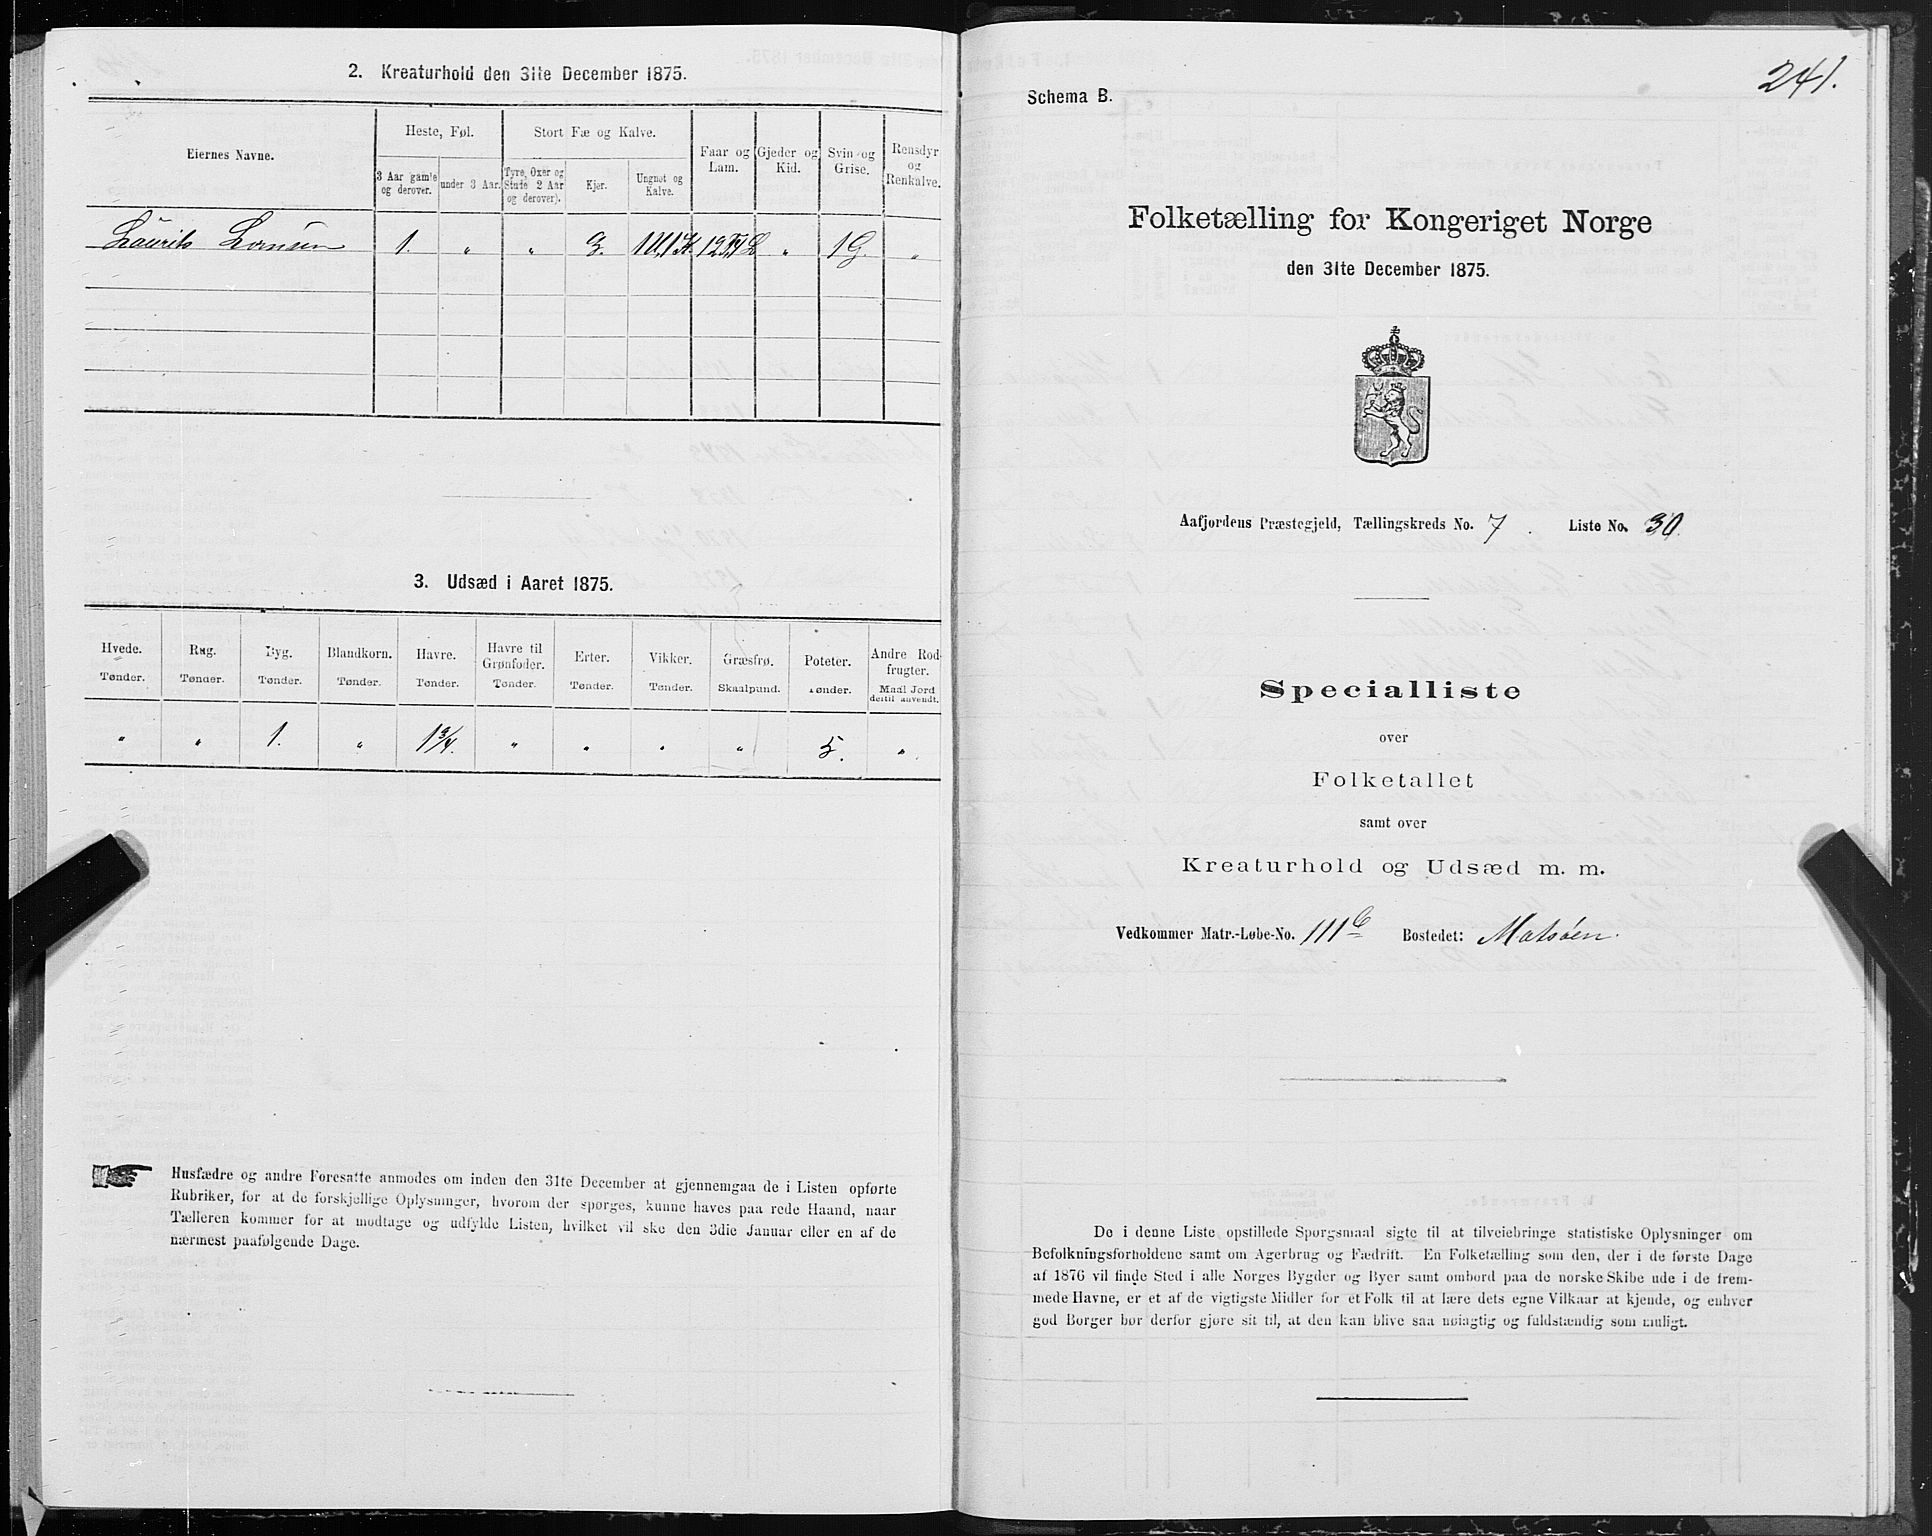 2. Kreaturhold den 31te December 1875.
Eiernes Navne.
Heste, Føl.
Stort Fæ og Kalve.
Faar og Lam.
Gjeder og Kid.
Svin og Grise.
Rensdyr og Renkalve.
3 Aar gamle og derover.
under 3 Aar.
Tyre, Oxer og Stude 2 Aar og derover).
Kjør.
Ungnøt og Kalve.
Laurits 1. " " 3. 1U,1K. " 1G. "
3. Udsæd i Aaret 1875.
Hvede. Rug. Byg. Blandkorn. Havre. Havre til Grønfoder. Erter. Vikker. Græsfrø. Poteter. Andre Rodfrugter.
Tønder. Tønder. Tønder. Tønder. Tønder. Tønder. Tønder. Tønder. Skaalpund. Tønder. Maal Jord dertil anvendt.
" " 1. " 1 3/4. " " " " 5. "
Husfædre og andre Foresatte anmodes om inden den 31te December at gjennemgaa de i Listen opførte
Rubriker, for at de forskjellige Oplysninger, hvorom der spørges, kunne haves paa rede Haand, naar
Tælleren kommer for at modtage og udfylde Listen, hvilket vil ske den 3die Januar eller en af de
nærmest paafølgende Dage.
241.
Schema B.
Folketælling for Kongeriget Norge
den 31te December 1875.
Aafjordens Præstegjeld, Tællingskreds No. 7. Liste No. 30.
Specialliste
over
Folketallet
samt over
Kreaturhold og Udsæd m. m.
Vedkommer Matr.-Løbe-No. 111c Bostedet: Matsøen.
De i denne Liste opstillede Spørgsmaal sigte til at tilveiebringe statistiske Oplysninger om
Befolkningsforholdene samt om Agerbrug og Fædrift. En Folketælling som den, der i de første Dage
af 1876 vil finde Sted i alle Norges Bygder og Byer samt ombord paa de norske Skibe ude i de frem-
mede Havne, er et af de vigtigste Midler for et Folk til at lære dets egne Vilkaar at kjende, og enhver
god Borger bør derfor gjøre sit til, at den kan blive saa nøiagtig og fuldstændig som muligt.